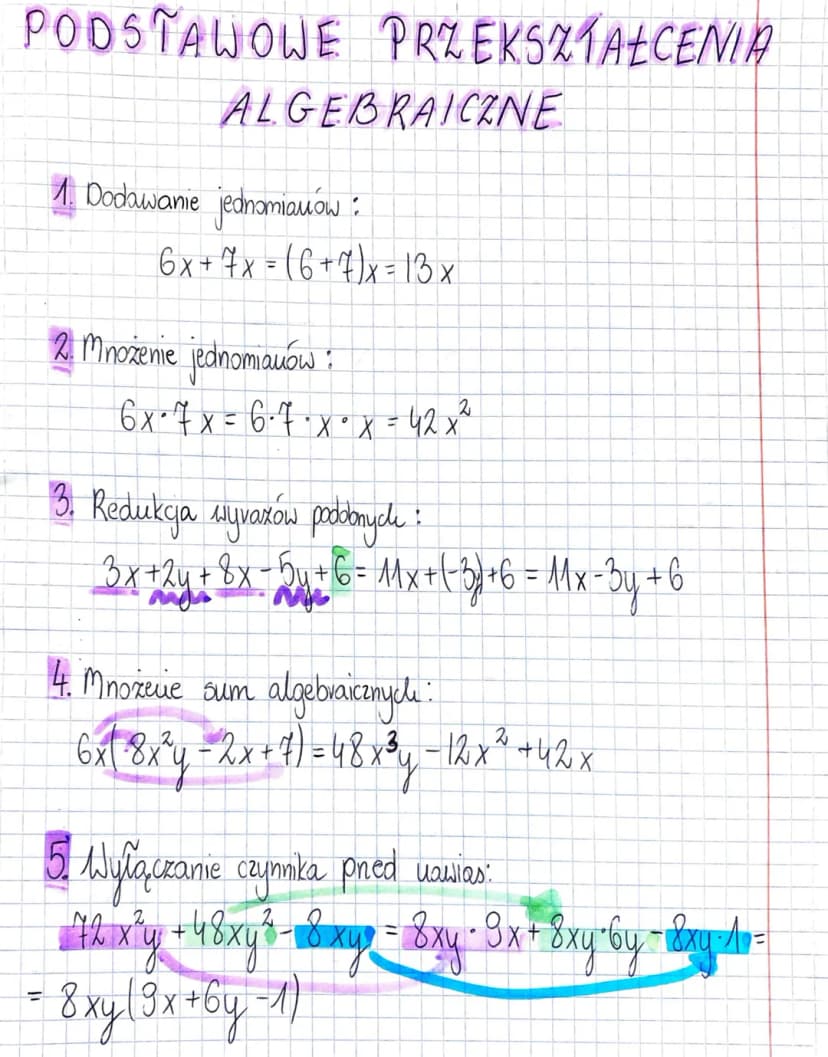 PODSTAWOWE PRZEKSZTAŁCENIA
ALGEBRAICZNE
1. Dodawanie jednomianów:
6x+7x=(6+7)x=13x
2. Mnożenie jednomianów:
6x·7x=6·7·x·x=42x²
3. Redukcja wyrazów podobnych:
3x+2y+8x-5y+6=11x+(-3y)+6=11x-3y+6
4. Mnożenie sum algebraicznych:
6x(8x²y-2x+7)=48x³y-12x²+42x
5. Wyłączanie czynnika przed nawias:
72x²y+48xy²-8xy=8xy·9x+8xy·6y-8xy·1=
=8xy(9x+6y-1)